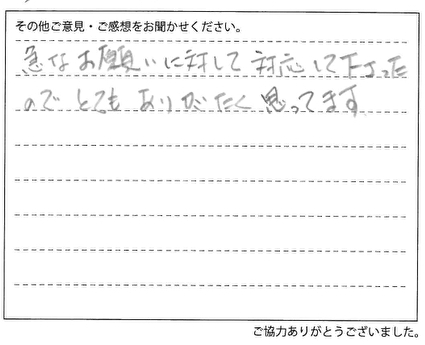 その他ご意見・ご感想をお聞かせください。
急なお願いに対して対応して下さった
のでとてもありがたく思ってます
ご協力ありがとうございました。